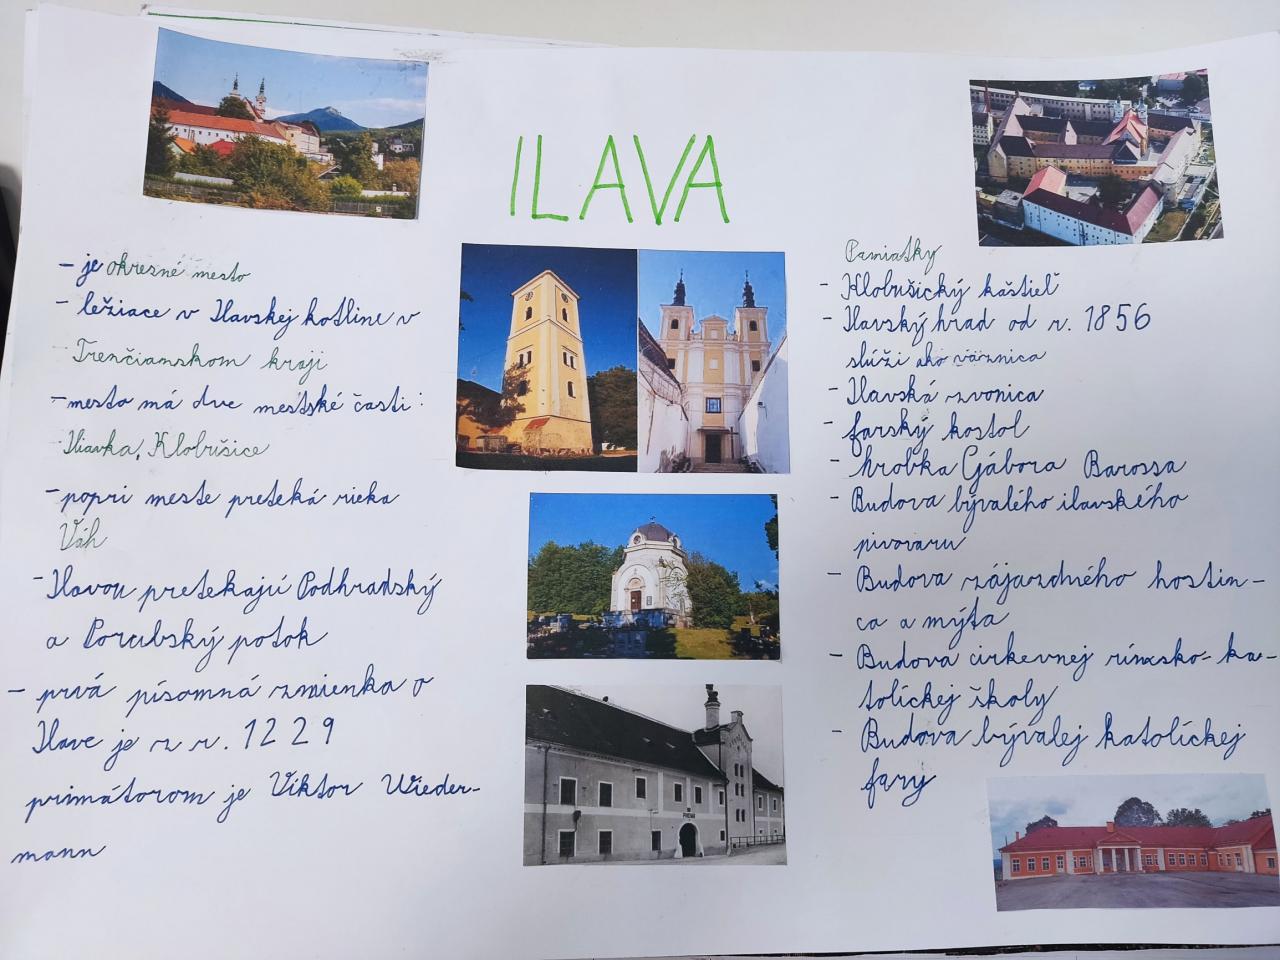 ILAVA
- je okresné mesto
- ležiace v Ilavskej kotline v
Trenčianskom kraji
- mesto má dve mestské časti:
Iliavka, Klobušice
- popri meste preteká rieka
Váh
- Ilavou pretekajú Podhradský
a Porubský potok
- prvá písomná zmienka o
Ilave je z r. 1229
primátorom je Viktor Wieder-
mann
Pamiatky
- Klobušický kaštieľ
- Ilavský hrad od r. 1856
slúži ako väznica
- Ilavská zvonica
- farský kostol
- hrobka Gábora Barossa
- Budova bývalého ilavského
pivovaru
- Budova zájazdného hostin-
ca a mýta
- Budova cirkevnej rímsko-ka-
tolíckej školy
- Budova bývalej katolíckej
fary